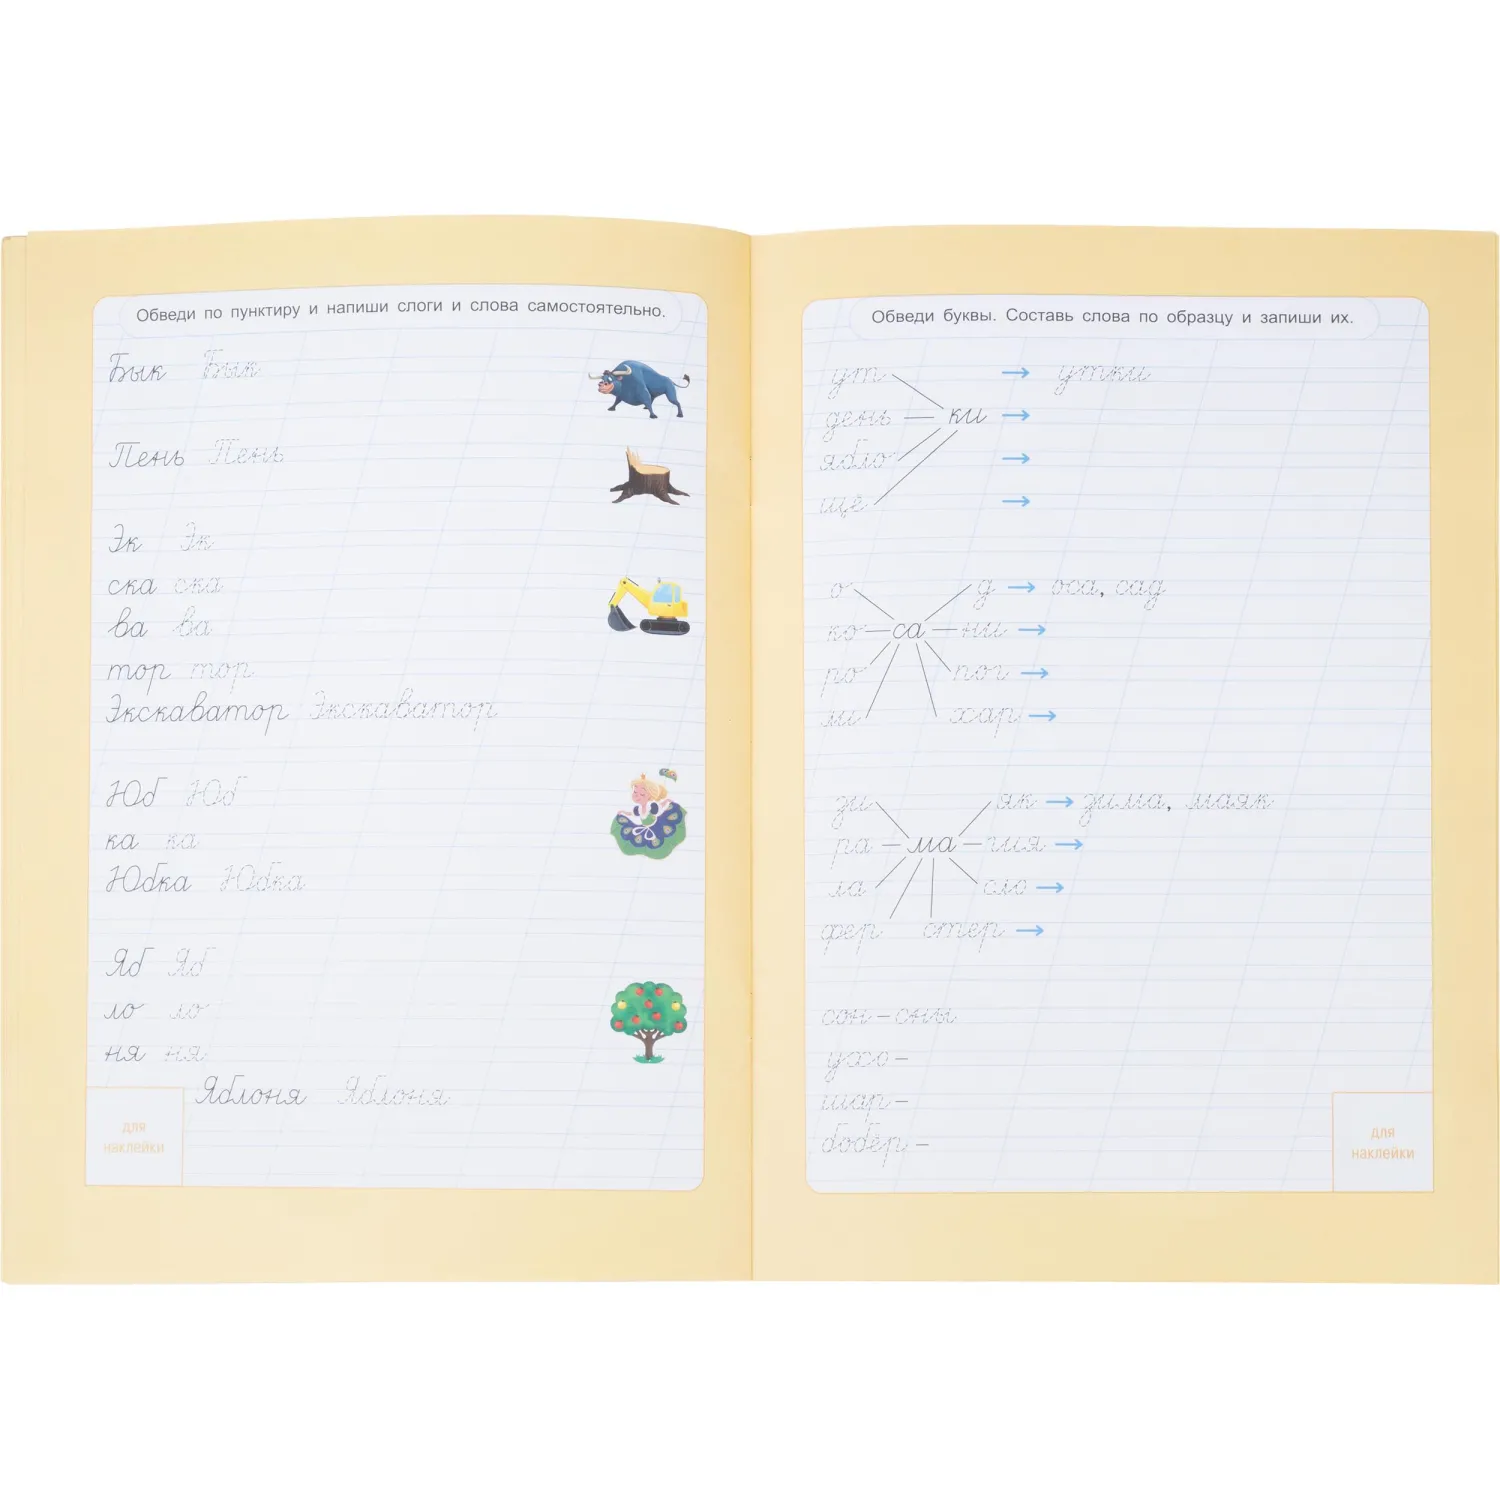 Обведи по пунктиру и напиши слоги и слова самостоятельно.
Бык Бык
Пень Пень
Эк Эк
ска ска
ва ва
тор тор
Экскаватор Экскаватор
Юб Юб
ка ка
Юбка Юбка
Яб Яб
ло ло
ня ня
Яблоня Яблоня
для
наклейки
Обведи буквы. Составь слова по образцу и запиши их.
ут → утки
день ки →
ябло →
щё →
о д → оса, сад
ко са ни →
ро пог →
ли хар →
зи як → зима, маяк
ра ма гия →
ла сло →
фер стер →
сон – сны
ухо –
шар –
бобёр –
для
наклейки